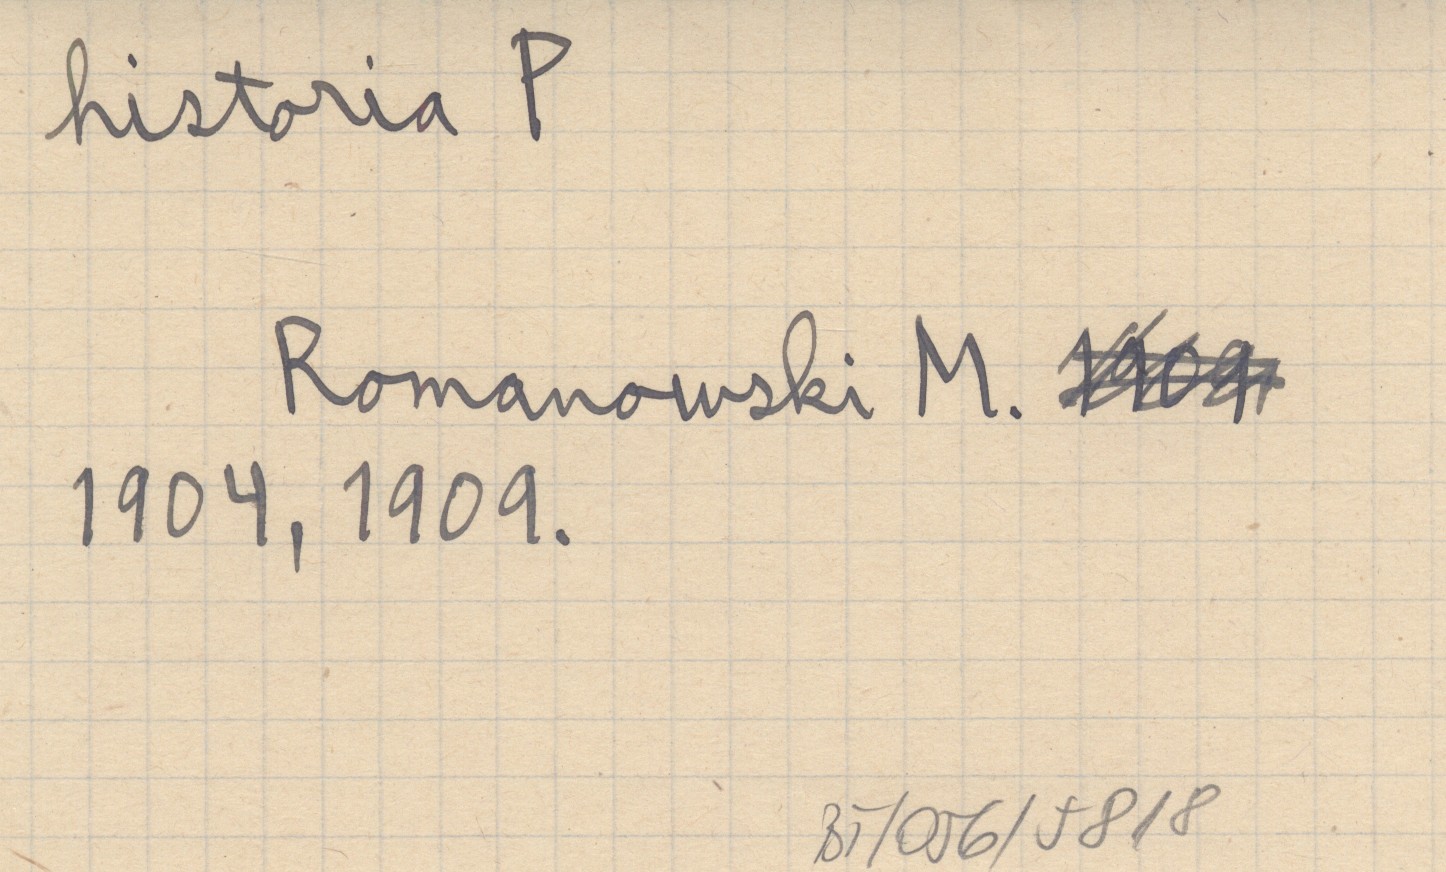 historia P
Romanowski M.
1904, 1909.
BT/056/5818